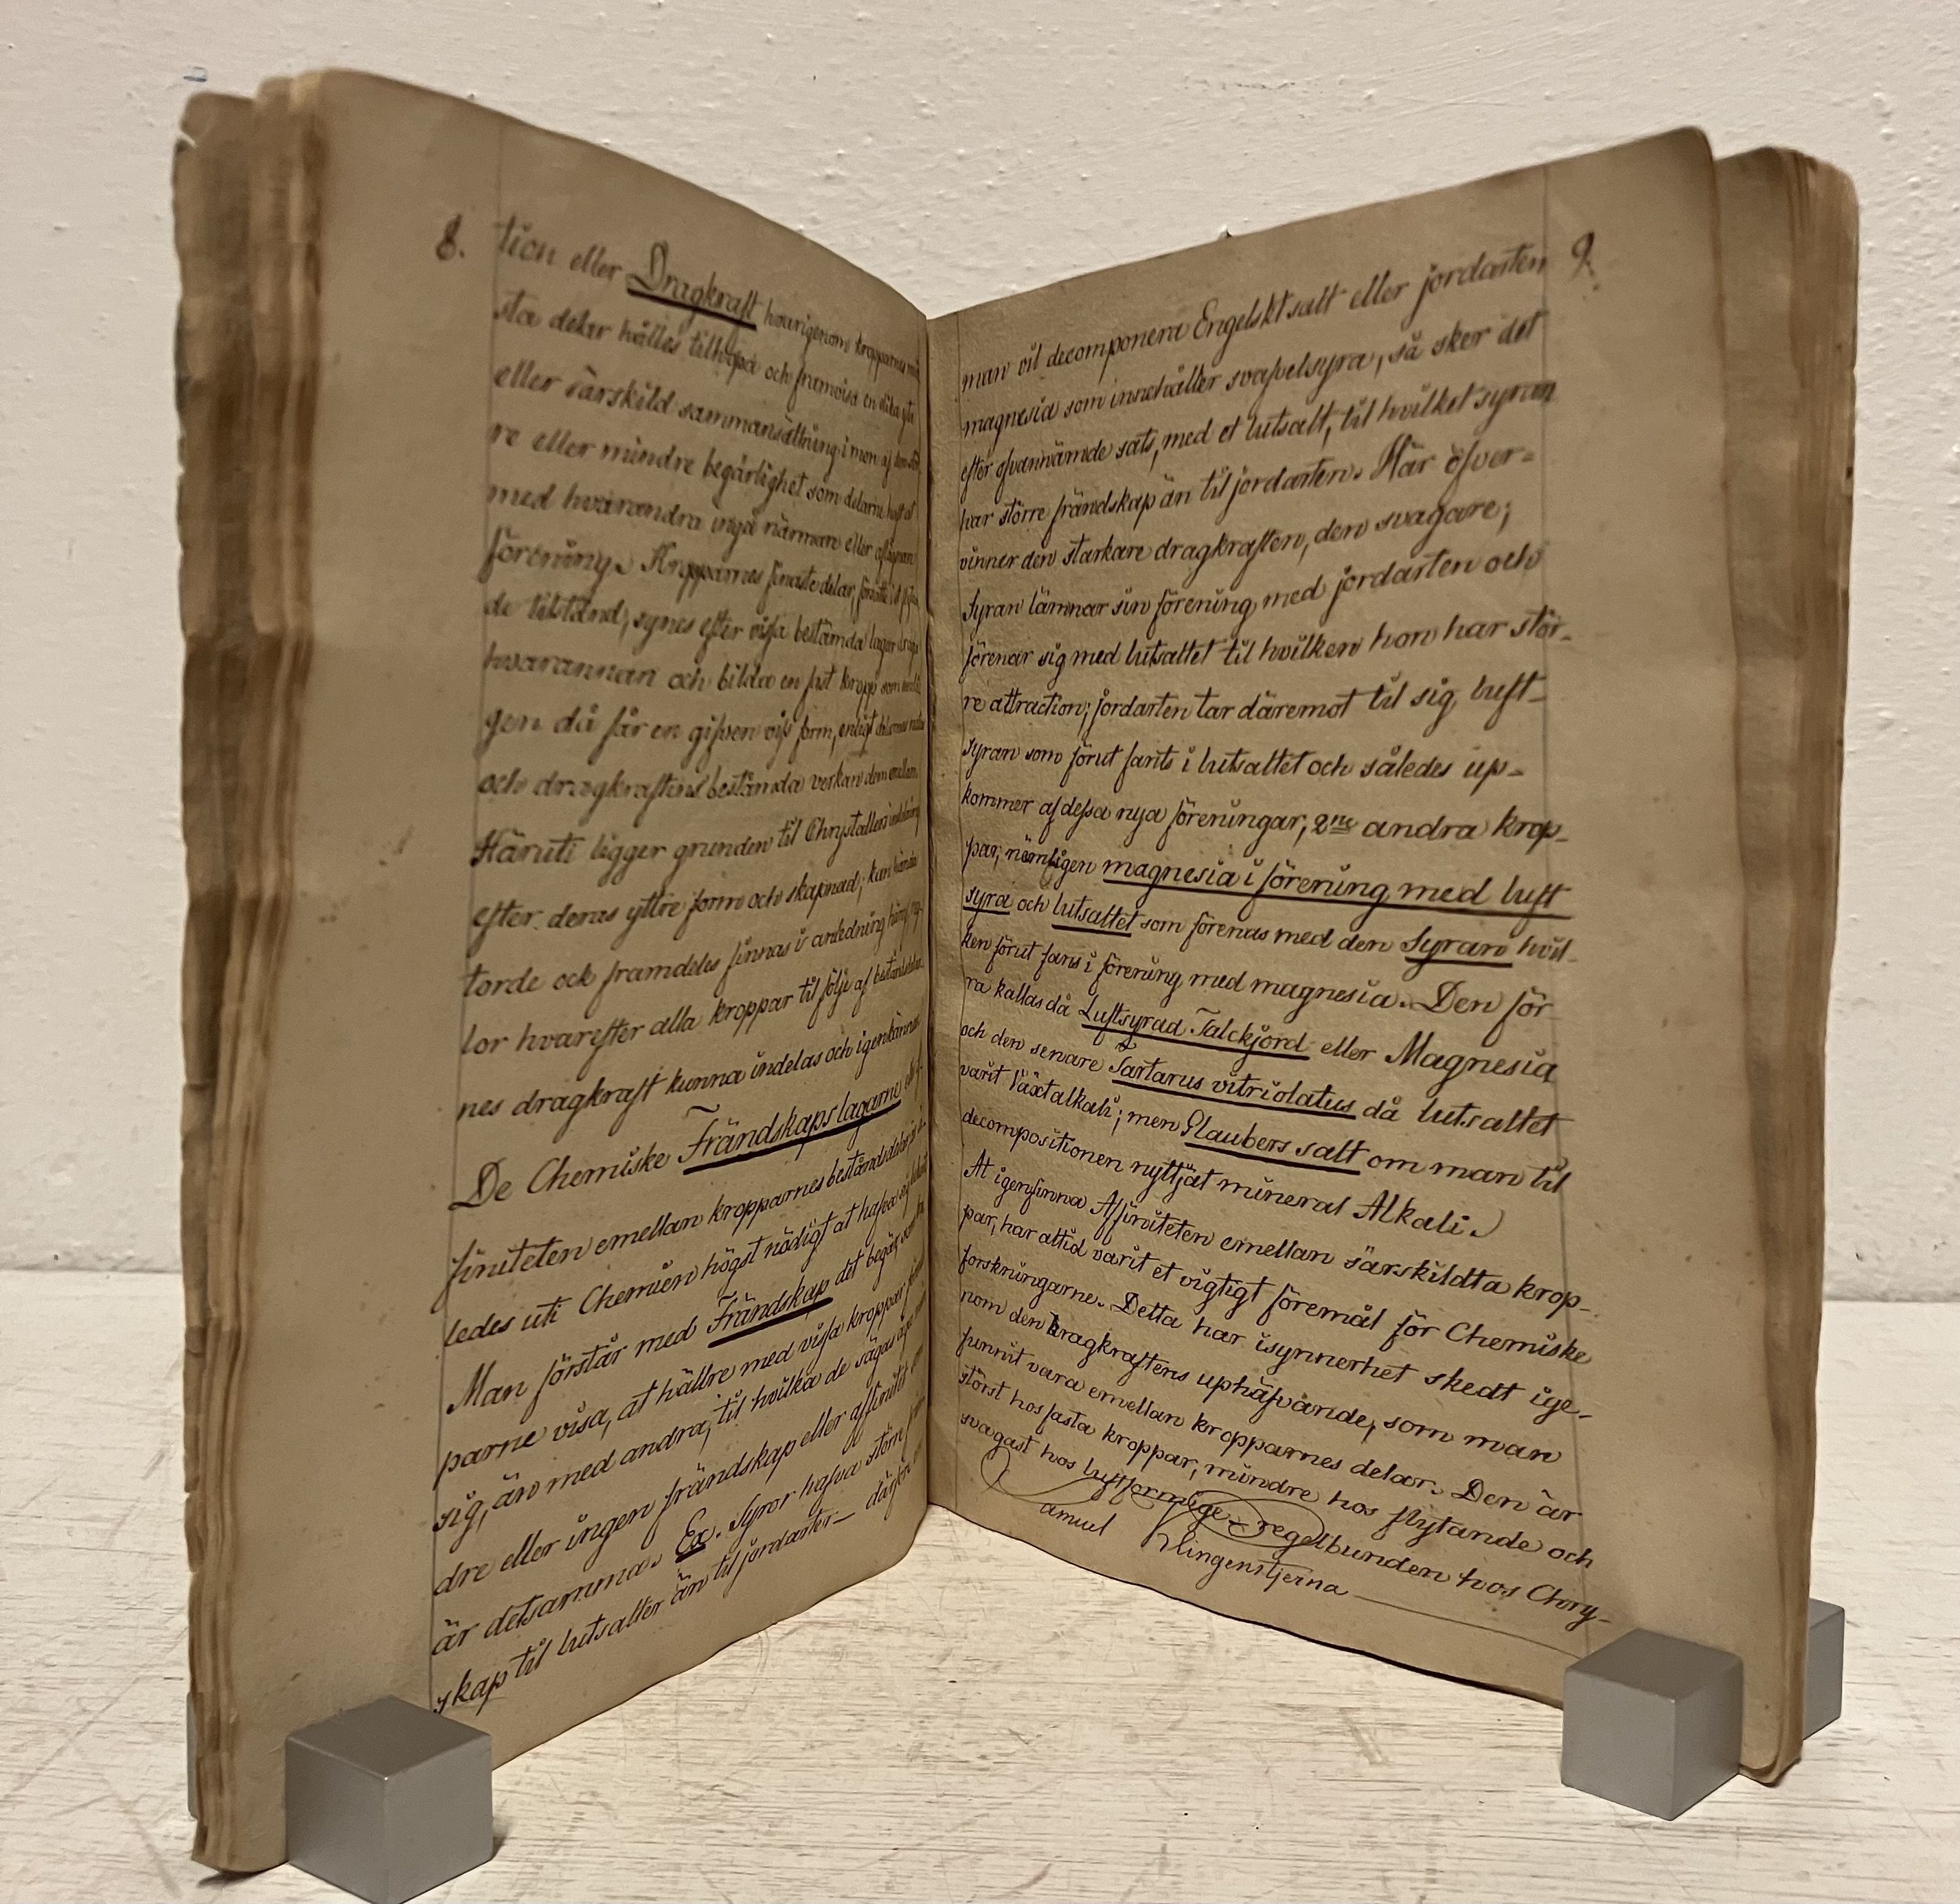 8.
tion eller Dragkraft hvarigenom kropparnes min
sta delar hålles tilhopa och framvisa en olika yta
eller särskild sammansättning i mon af den stör
re eller mindre begärlighet som delarne haft at
med hvarandra ingå närmare eller aflägsnare
förening. Kropparnes finaste delar, försatte i et
de tilstånd, synes efter vissa bestämda lagar draga
hvarannan och bilda en fast kropp som
gen då får en gifven viss form, enligt delarnes natur
och dragkraftens bestämda verkan dem emellan.
Häruti ligger grunden til Chrystallers indelning
efter deras yttre form och skapnad; kan hända
torde ock framdeles finnas i anledning häraf, reg
lor hvarefter alla kroppar til följe af beståndsdelar
nes dragkraft kunna indelas och igenkännas.
De Chemiske Frändskapslagarne eller
finiteten emellan kropparnes beståndsdelar är
ledes uti Chemien högst nödigt at hafva sig bekant
Man förstår med Frändskap det begär som
parne visa, at hällre med vissa kroppar förena
sig, än med andra, til hvilka de sägas äga
dre eller ingen frändskap eller affinitet som
är detsamma. Ex. Syror hafva större frän
skap til lutsalter än til jordarter — därföre om
9.
man vil decomponera Engelskt salt eller jordarten
magnesia som innehåller svafvelsyra, så sker det
efter ofvannämde sats, med et lutsalt, til hvilket syran
har större frändskap än til jordarten. Här öfver=
vinner den starkare dragkraften, den svagare;
Syran lämnar sin förening med jordarten och
förenar sig med lutsaltet til hvilken hon har stör-
re attraction; jordarten tar däremot til sig luft-
syran som förut fants i lutsaltet och således up-
kommer af dessa nya föreningar, 2ne andra krop-
par, nämligen magnesia i förening med luft
syra och lutsaltet som förenas med den Syran hvil-
ken förut fans i förening med magnesia. Den för
ra kallas då Luftsyrad Talckjord eller Magnesia
och den senare Tartarus vitriolatus då lutsaltet
varit Växtalkali; men Glaubers salt om man til
decompositionen nyttjat mineral Alkali.
At igenfinna Affiniteten emellan särskildta krop-
par, har altid varit et vigtigt föremål för Chemiske
forskningarne. Detta har isynnerhet skedt ige-
nom den dragkraftens uphäfvande, som man
funnit vara emellan kropparnes delar. Den är
störst hos fasta kroppar, mindre hos flytande och
svagast hos luftformige - regelbunden hos Chry-
Samuel Klingenstjerna